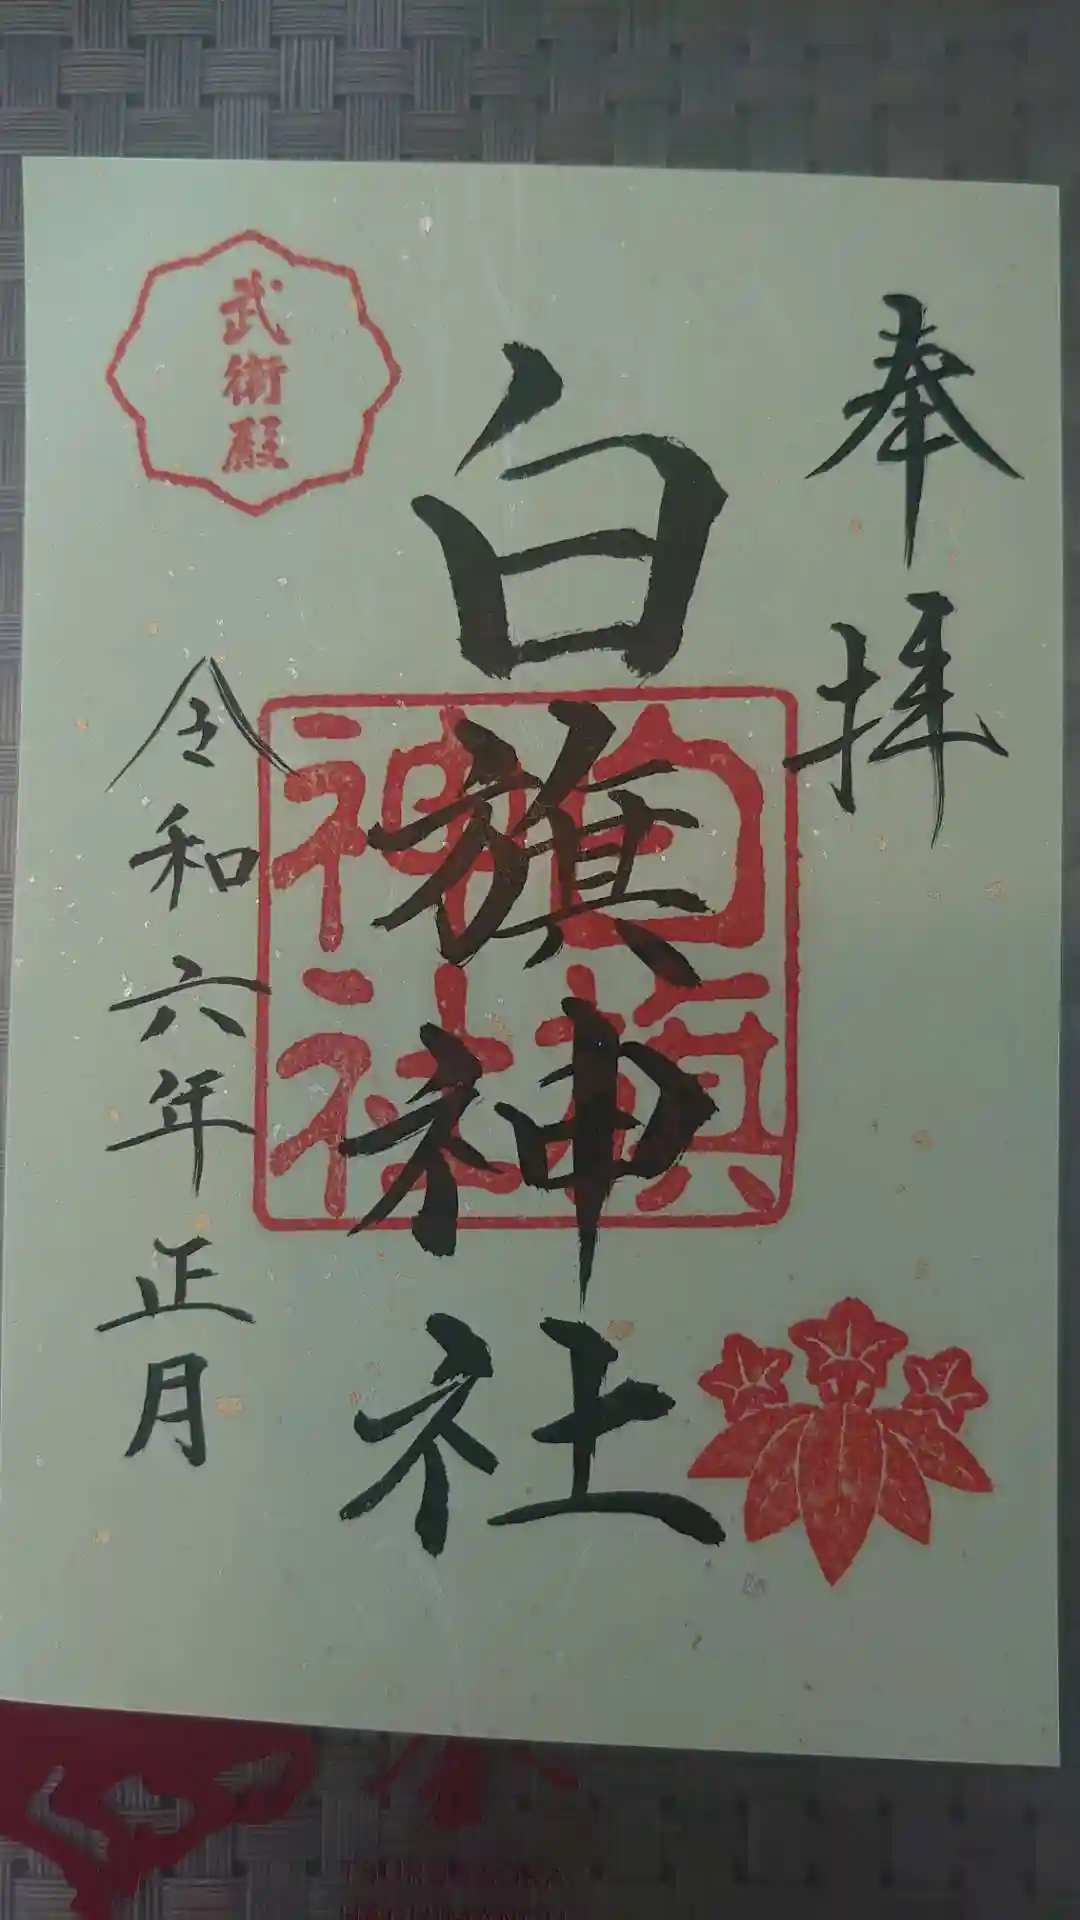 奉拝
白旗神社
白旗
神社
武術殿
令和六年正月
TSURUGAOKA
HACHIMANGU